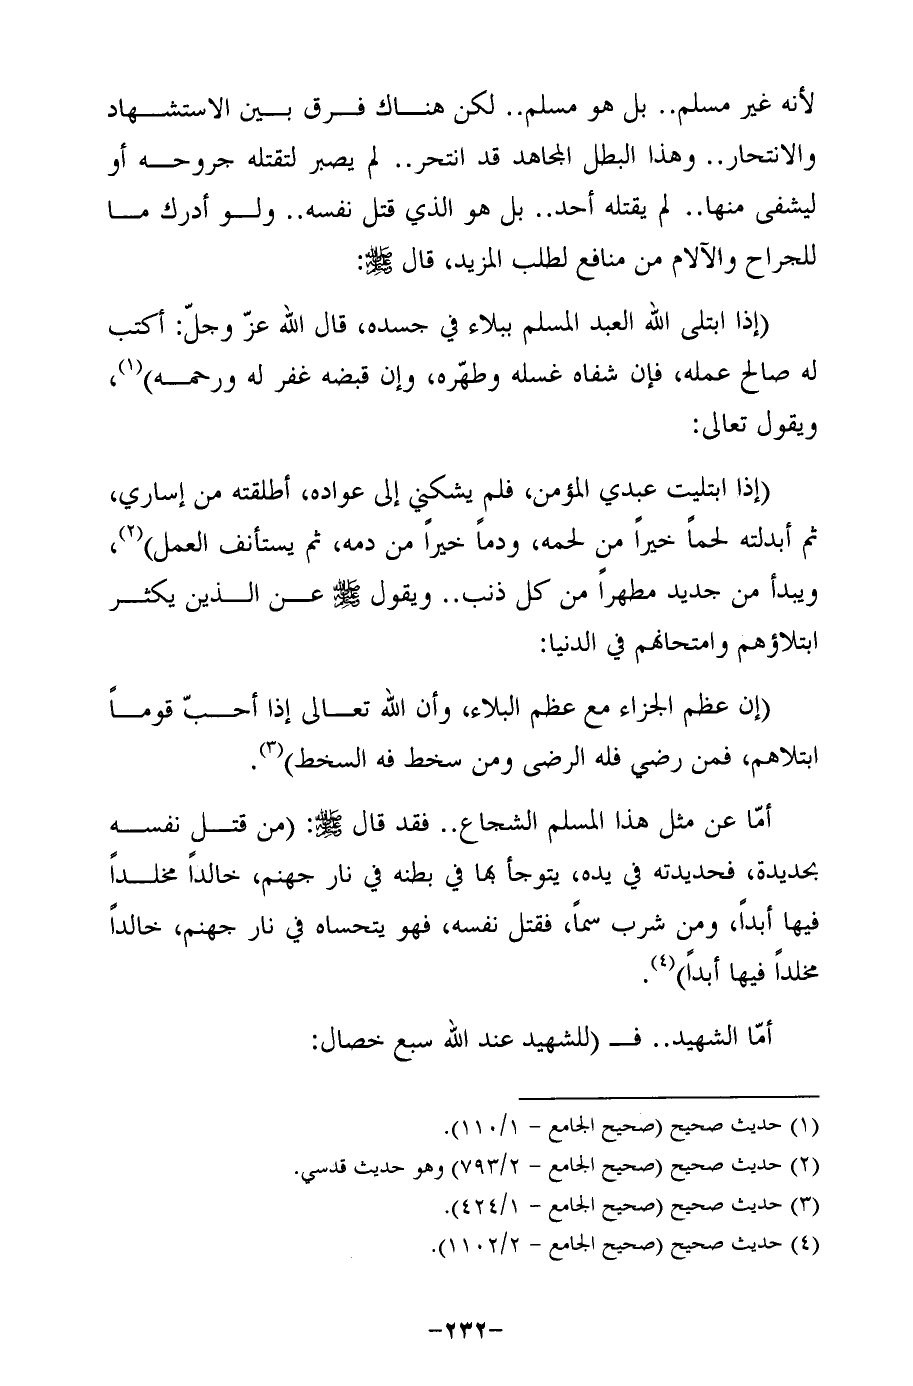 لأنه غير مسلم.. بل هو مسلم.. لكن هنــاك فــرق بــين الاستشــهاد
والانتحار.. وهذا البطل المجاهد قد انتحر.. لم يصبر لتقتله جروحــه أو
ليشفى منها.. لم يقتله أحد.. بل هو الذي قتل نفسه.. ولــو أدرك مــا
للجراح والآلام من منافع لطلب المزيد، قال ﷺ:
(إذا ابتلى الله العبد المسلم ببلاء في جسده، قال الله عزّ وجلّ: أكتب
له صالح عمله، فإن شفاه غسله وطهّره، وإن قبضه غفر له ورحمــه)(١)،
ويقول تعالى:
(إذا ابتليت عبدي المؤمن، فلم يشكني إلى عواده، أطلقته من إساري،
ثم أبدلته لحماً خيراً من لحمه، ودماً خيراً من دمه، ثم يستأنف العمل)(٢)،
ويبدأ من جديد مطهراً من كل ذنب.. ويقول ﷺ عــن الــذين يكثــر
ابتلاؤهم وامتحانهم في الدنيا:
(إن عظم الجزاء مع عظم البلاء، وأن الله تعــالى إذا أحــبّ قومــاً
ابتلاهم، فمن رضي فله الرضى ومن سخط فه السخط)(٣).
أمّا عن مثل هذا المسلم الشجاع.. فقد قال ﷺ: (من قتــل نفســه
بحديدة، فحديدته في يده، يتوجأ بها في بطنه في نار جهنم، خالداً مخلــداً
فيها أبداً، ومن شرب سماً، فقتل نفسه، فهو يتحساه في نار جهنم، خالداً
مخلداً فيها أبداً)(٤).
أمّا الشهيد.. فــ (للشهيد عند الله سبع خصال:
(١) حديث صحيح (صحيح الجامع – ١١٠/١).
(٢) حديث صحيح (صحيح الجامع – ٧٩٣/٢) وهو حديث قدسي.
(٣) حديث صحيح (صحيح الجامع – ٤٢٤/١).
(٤) حديث صحيح (صحيح الجامع – ١١٠٢/٢).
-٢٣٢-